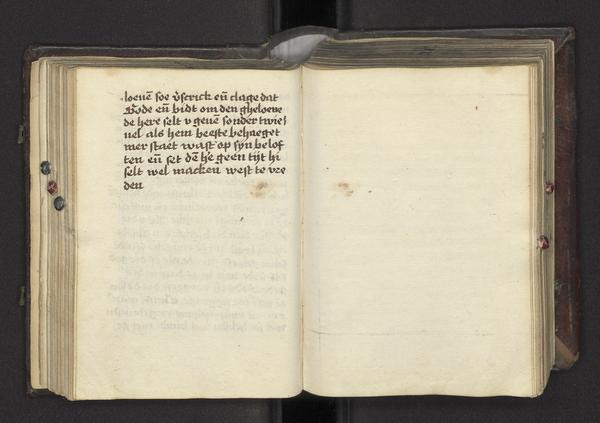 loeuē soe v̄scrick eū clage dat
Gode eū bidt om den gheloeue
de here selt v geuē sonder twiel
uel als hem beeste behaeget
mer staet wast op syn belof
ten eū set dē he geen tijt hi
selt wel macken west te vre
den